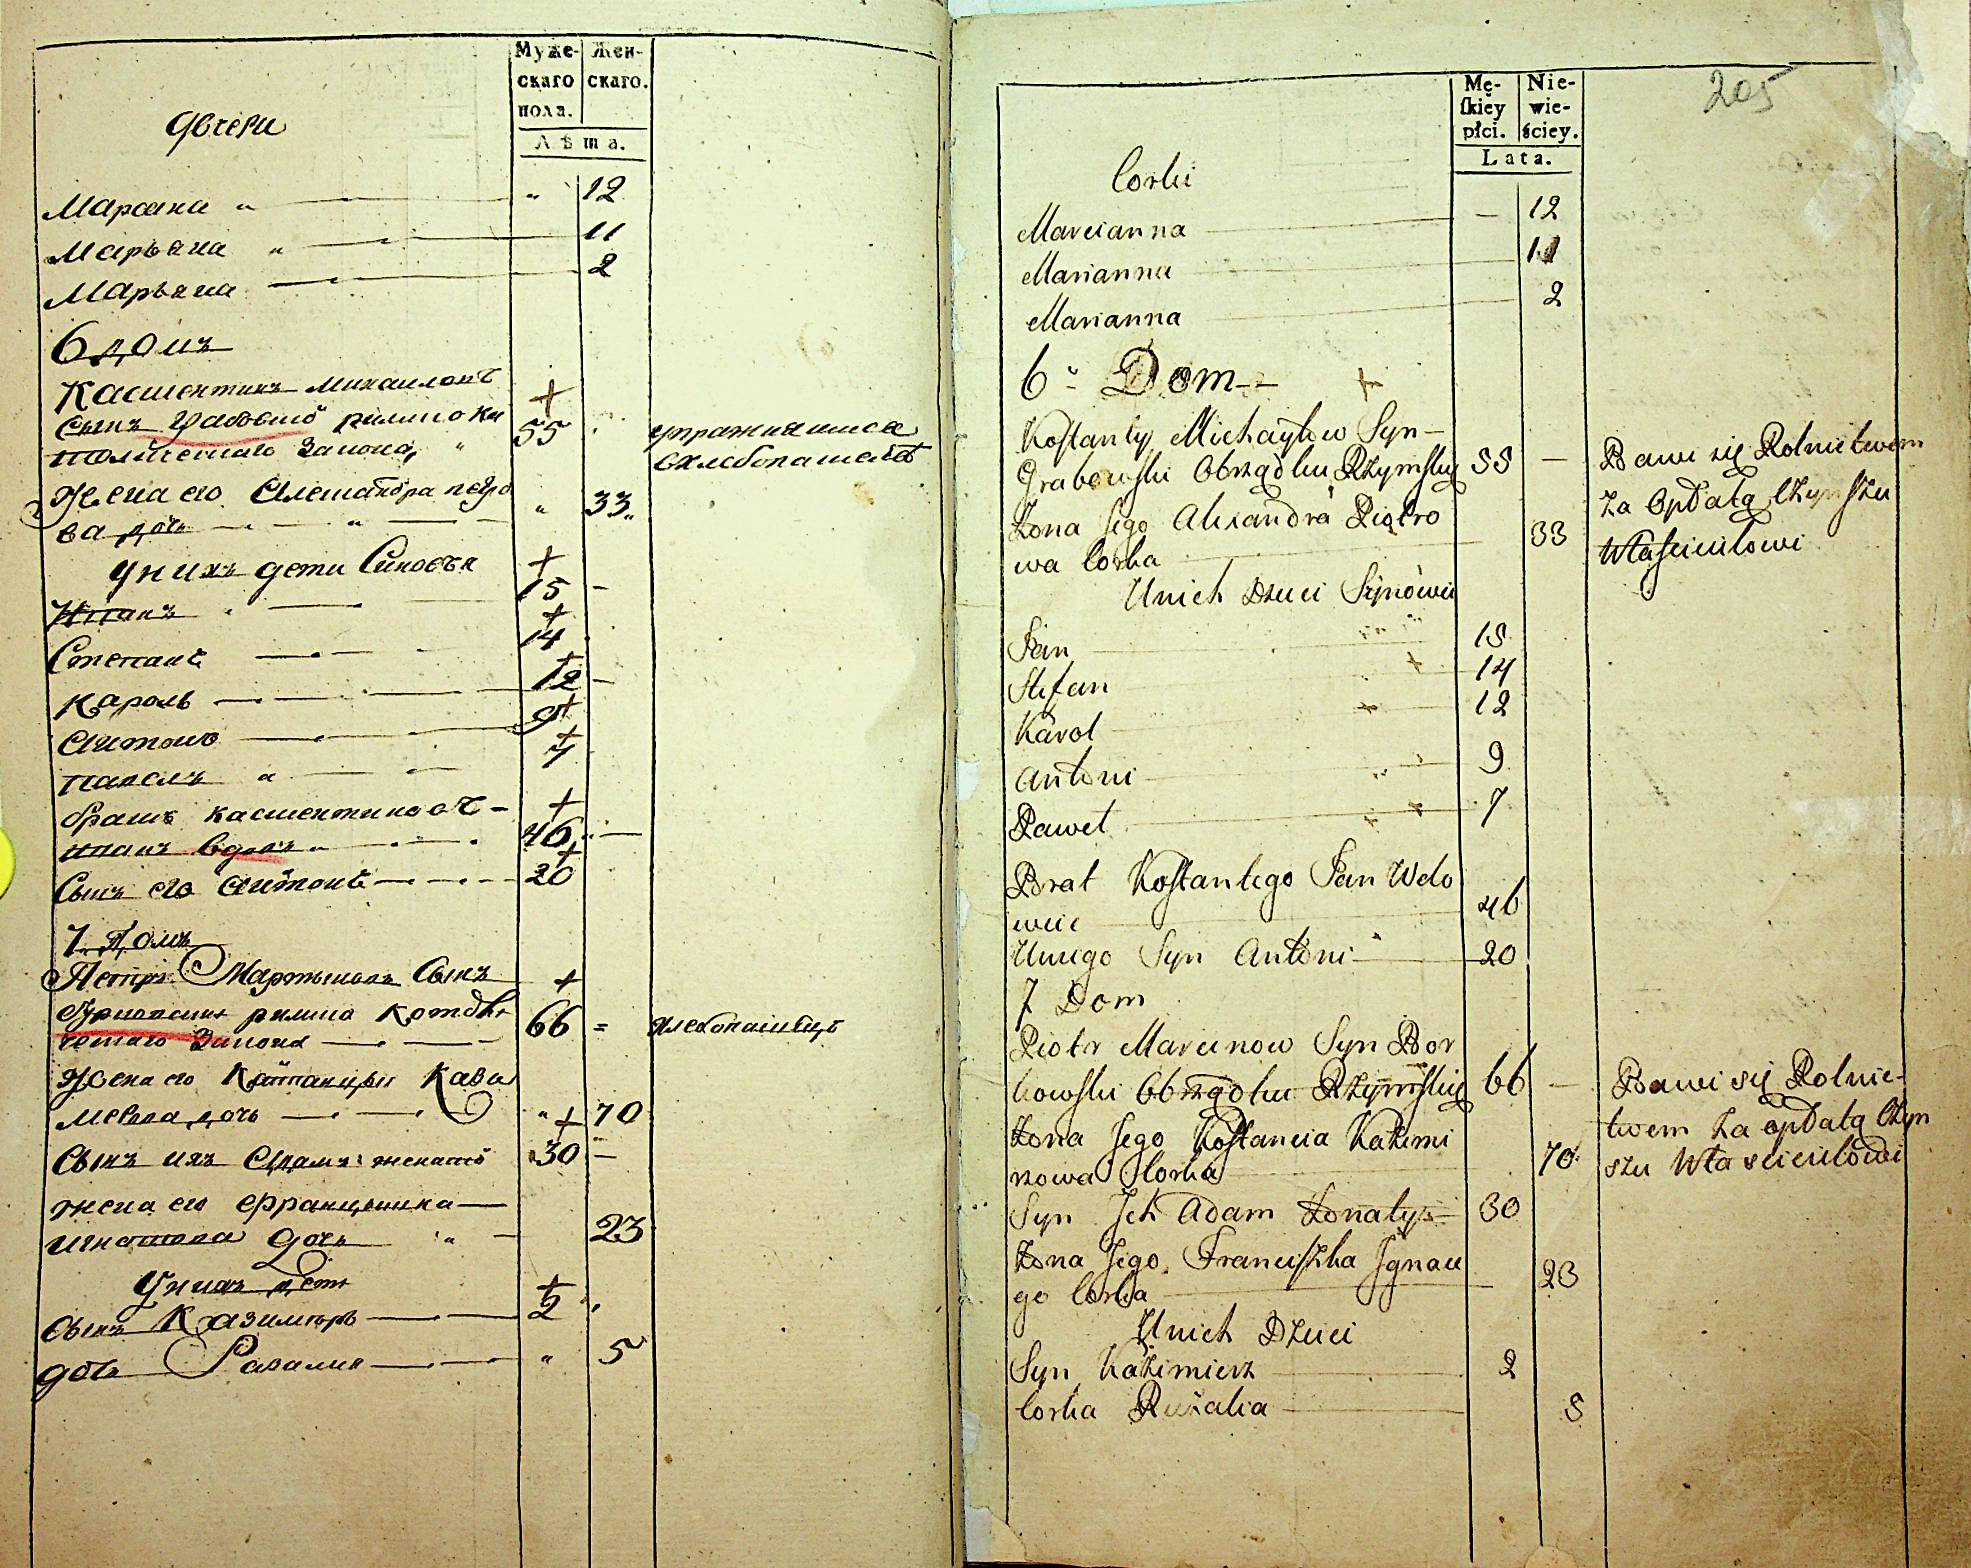 Муже-
скаго
пола.
Жен-
скаго.
Лѣта.
дочери
Марсана " " 12
Марьяна " 11
Марьяна 2
6 домъ
Касшентинъ Михаиловъ
сынъ римско ка
толического Закона, " 55 упражняится
вхлебопашестве
Жена его Алешандра петро
ва дочь " " 33 "
унихъ дети Синовья
Иванъ 15 -
Степанъ 14
Кароль 12 -
Антонъ 9
Павелъ " 7
братъ касшентиновъ -
иванъ вдовъ " 46
Сынъ его Антонъ 20
7 Домъ
Петръ Мартиновъ Сынъ
римско католи
ческаго Закона 66 = хлебопашецъ
Жена его Констанция Кази
мерова дочь " 70
Сынъ ихъ Адамъ: женатъ 30
жена его Францишка
игнатова дочь " 23
Унихъ дети
Сынъ Казимиръ 2
дочь Разалия " 5
205
Mę-
skiey
płci.
Nie-
wie-
ściey.
Lata.
Corki
Marcianna - 12
Marianna 11
Marianna 2
6" Dom
Kostanty Michayłow Syn -
Grabowski Obrządku Rzymskig 55 - Bawi się Rolnictwem
za Opłatą Czynszu
Właścicielowi
Zona Jego Alexandra Piotro
wa Corka 33
Unich Dzieci Synowie
Jan 15
Stefan 14
Karol 12
Antoni 9
Paweł 7
Brat Kostantego Jan Wdo
wiec 46
Uniego Syn Antoni 20
7 Dom
Piotr Marcinow Syn Bor
kowski Obrządku Rzymskig 66 - Bawi się Rolnic-
twem za opłatą Czyn
szu Właścicielowi
Zona Jego Kostancia Kazimi
rzowa Corka 70
Syn Jch Adam Zonaty 30
Zona Jego Franciszka Jgnace
go Corka 23
Unich Dzieci
Syn Kazimierz 2
Corka Ruzalia 5